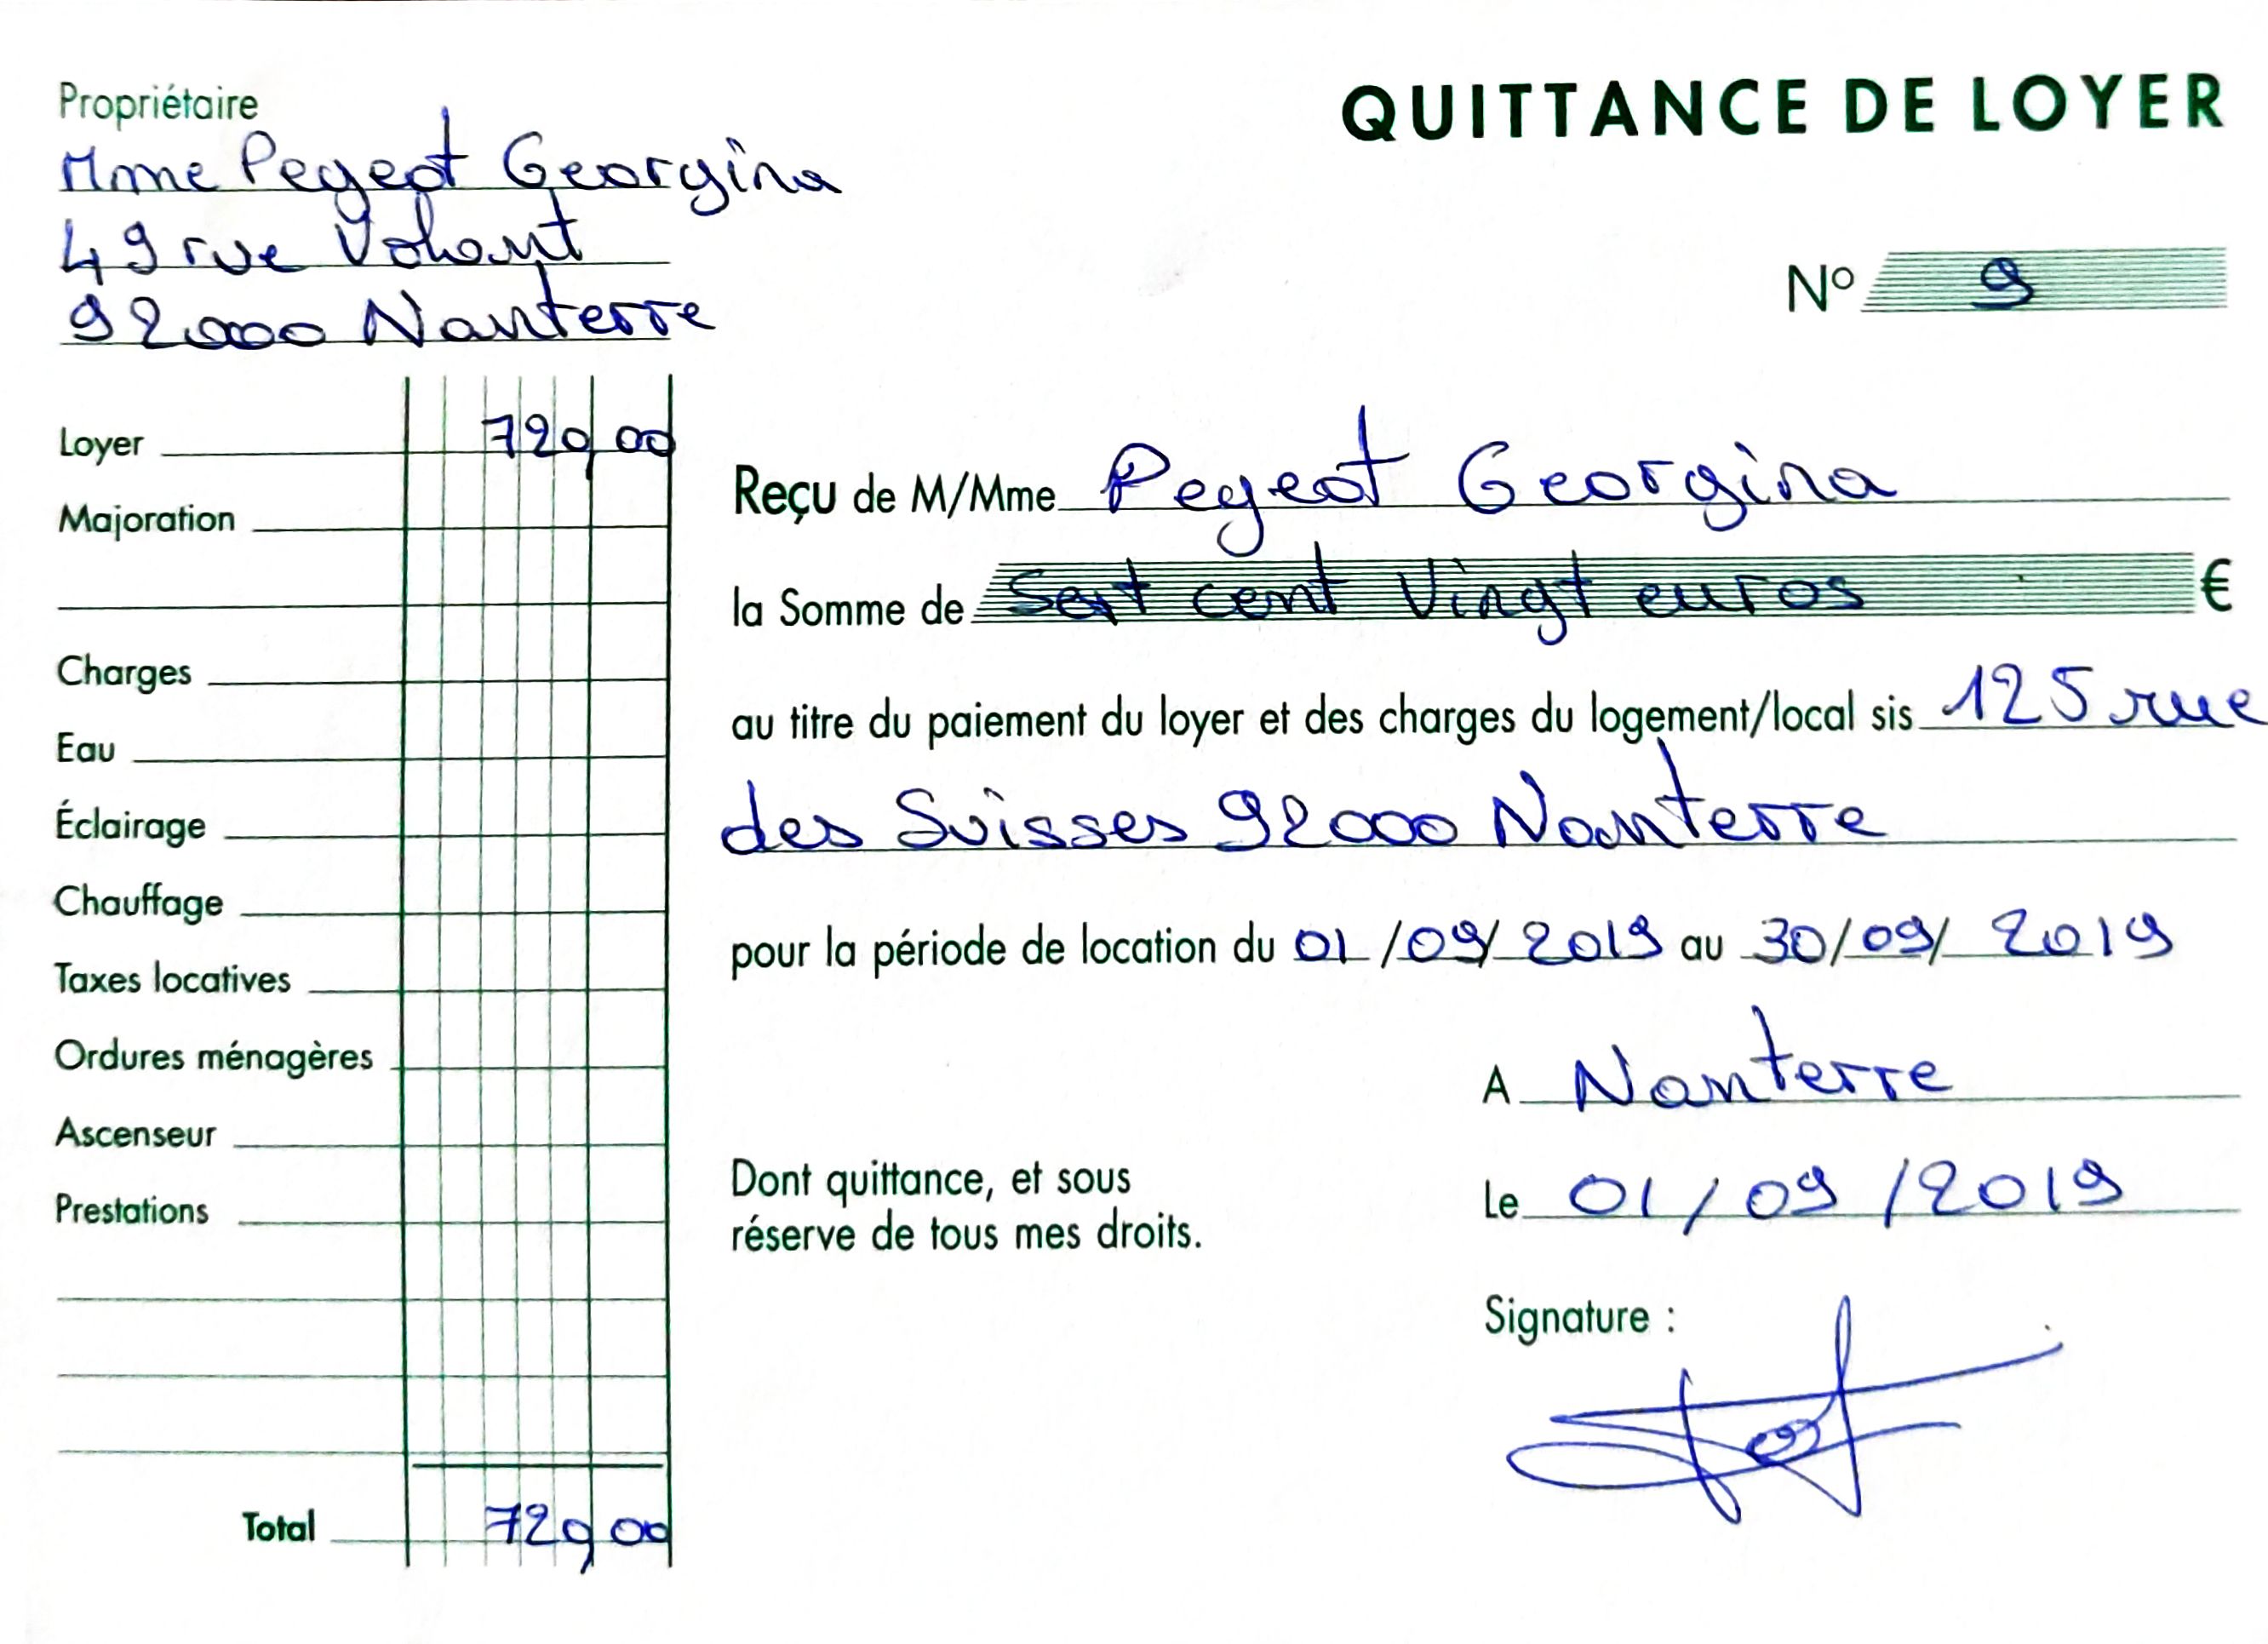 Propriétaire
Mme Pegeot Georgina
49 rue Volant
92000 Nanterre
QUITTANCE DE LOYER
N° 9
Loyer 720,00
Majoration
Charges
Eau
Éclairage
Chauffage
Taxes locatives
Ordures ménagères
Ascenseur
Prestations
Total 720,00
Reçu de M/Mme Pegeot Georgina
la Somme de Sept cent Vingt euros €
au titre du paiement du loyer et des charges du logement/local sis 125 rue
des Suisses 92000 Nanterre
pour la période de location du 01/09/2019 au 30/09/2019
A Nanterre
Le 01/09/2019
Dont quittance, et sous
réserve de tous mes droits.
Signature :